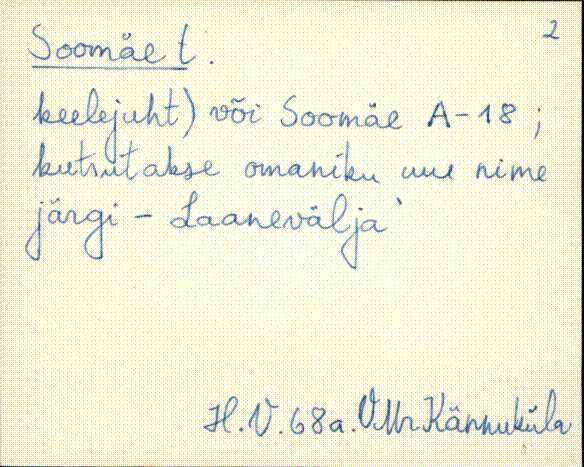 2
Soomäe t.
keelejuht) või Soomäe A-18;
kutsutakse omaniku uue nime
järgi - Laanevälja`
H.V.68a. VMr Kännuküla